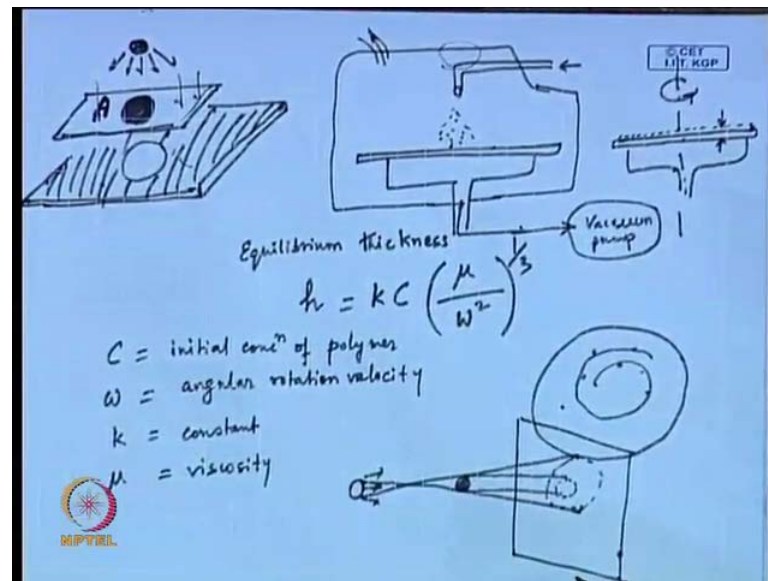 A
© CET
I.I.T. KGP
Vacuum
pump
Equilibrium thickness
h = k C (μ/ω²)^1/3
C = initial concⁿ of polymer
ω = angular rotation velocity
k = constant
μ = viscosity
NPTEL